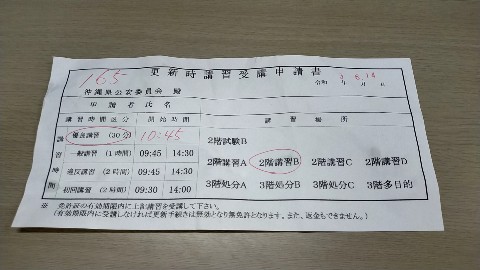 165
更新時講習受講申請書
令和 3年8月18日
沖縄県公安委員会 殿
申請者氏名
講習時間区分 開始時間 講習場所
講習時間
優良講習 (30分) 10:45
一般講習 (1時間) 09:45 14:30
違反講習 (2時間) 09:45 14:30
初回講習 (2時間) 09:30 14:00
2階試験B
2階講習A 2階講習B 2階講習C 2階講習D
3階処分A 3階処分B 3階処分C 3階多目的
※ 免許証の有効期限内に上記講習を受講して下さい。
(有効期限内に受講しなければ更新手続きは無効となり無免許となります。また、返金もできません。)